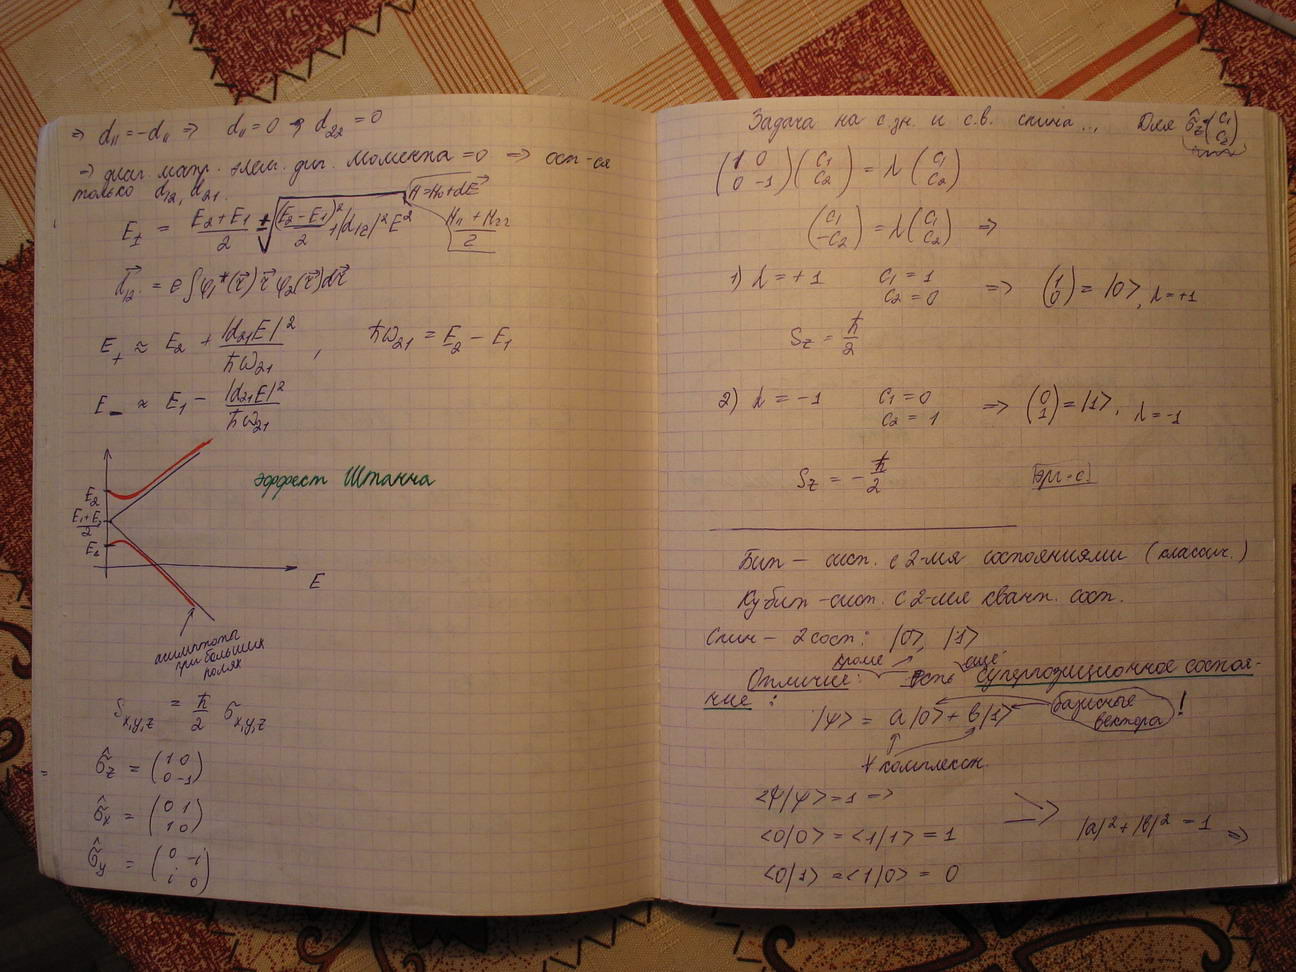 ⇒ d₁₁ = -d₁₁ ⇒ d₁₁ = 0 → d₂₂ = 0
→ диаг. матр. элем. дип. момента = 0 ⇒ ост-ся
только d₁₂, d₂₁.
H = H₀ + dE⃗
E± = (E₂ + E₁)/2 ± √((E₂ - E₁)²/2 + |d₁₂|² E²)
(H₁₁ + H₂₂)/2
d⃗₁₂ = e ∫ φ₁*(r⃗) r⃗ φ₂(r⃗) dr⃗
E₊ ≈ E₂ + |d₂₁E|²/ħω₂₁ , ħω₂₁ = E₂ - E₁
E₋ ≈ E₁ - |d₂₁E|²/ħω₂₁
эффект Штарка
E₂
(E₁+E₂)/2
E₁
E
асимптоты
при больших
полях
S_{x,y,z} = ħ/2 σ_{x,y,z}
σ̂_z = (1 0
0 -1)
σ̂_x = (0 1
1 0)
σ̂_y = (0 -i
i 0)
Задача на с.зн. и с.в. спина... Для σ̂_z (c₁
c₂)
(1 0
0 -1) (c₁
c₂) = λ (c₁
c₂)
(c₁
-c₂) = λ (c₁
c₂) ⇒
1) λ = +1 c₁ = 1
c₂ = 0 ⇒ (1
0) = |0>, λ = +1
S_z = ħ/2
2) λ = -1 c₁ = 0
c₂ = 1 ⇒ (0
1) = |1>, λ = -1
S_z = -ħ/2
эрг·с
Бит – сист. с 2-мя состояниями (классич.)
Кубит – сист. с 2-мя квант. сост.
Спин – 2 сост: |0>, |1>
кроме ещё
Отличие: есть суперпозиционное состоя-
ние:
|ψ> = a|0> + b|1> базисные
вектора !
комплексн.
<ψ|ψ> = 1 ⇒
<0|0> = <1|1> = 1 |a|² + |b|² = 1 ⇒
<0|1> = <1|0> = 0